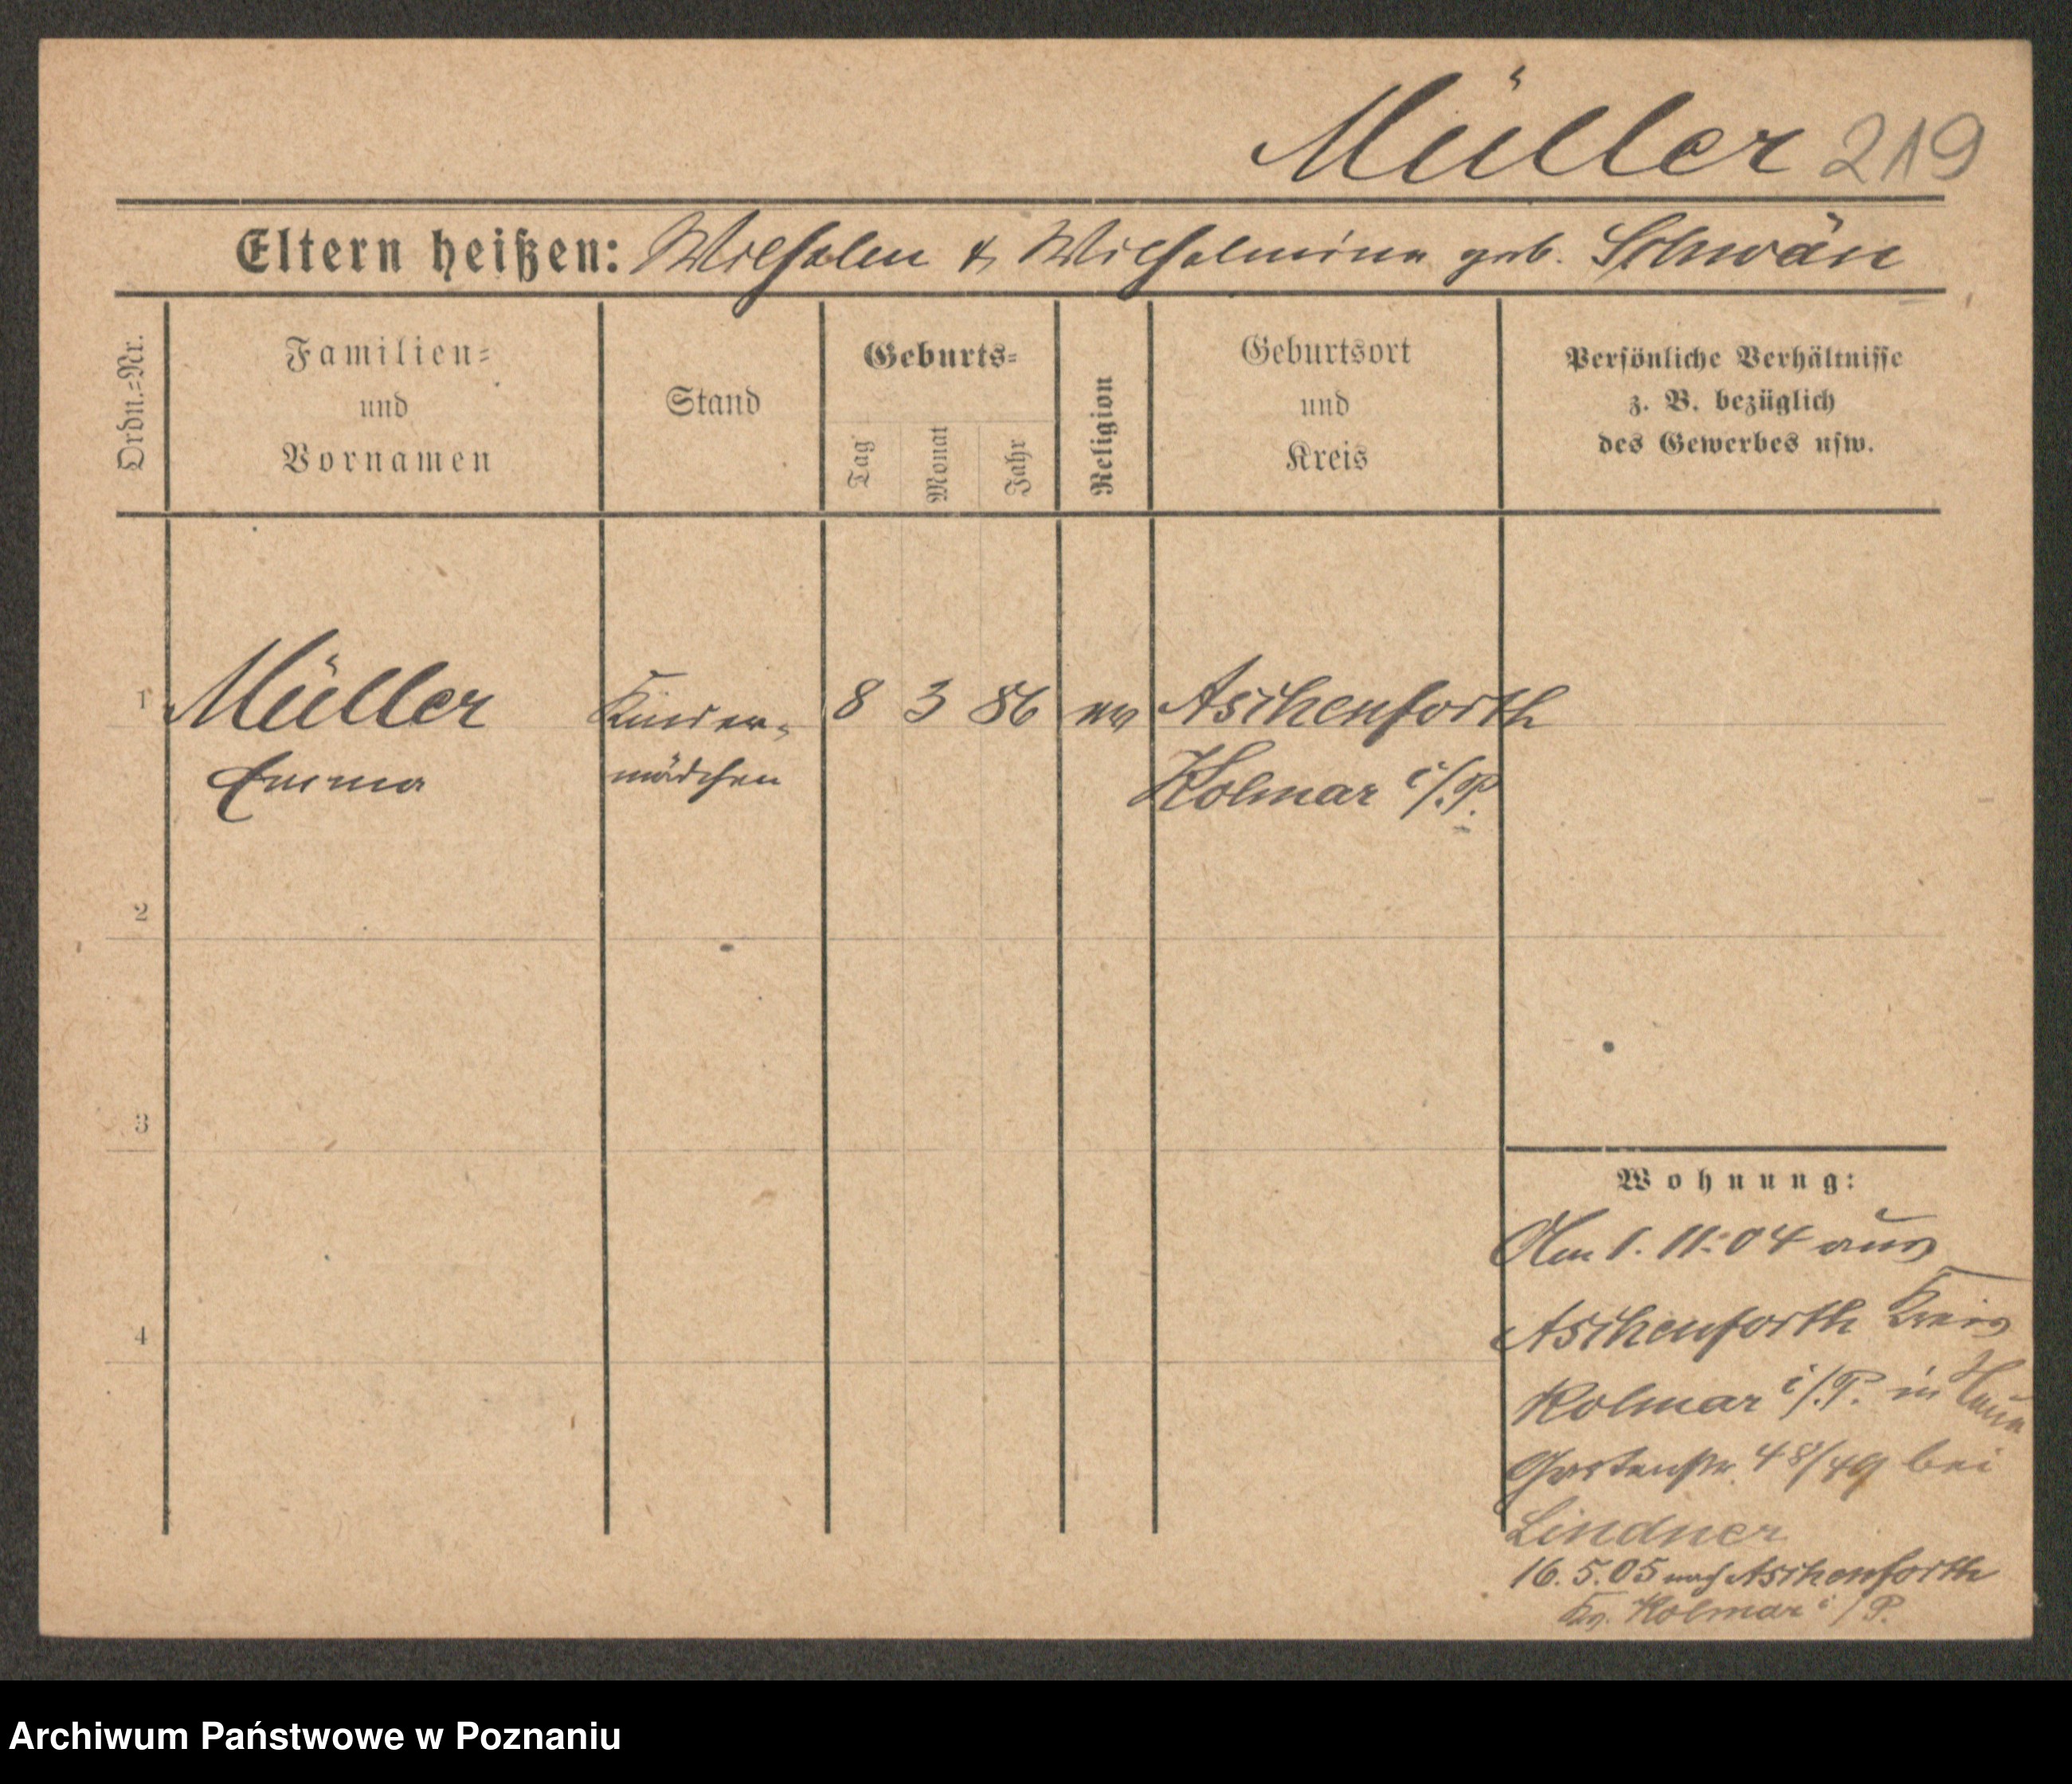 Müller 219
Eltern heißen: Wilhelm & Wilhelmine geb. Schwän
Ordn.=Nr.
Familien=
und
Vornamen
Stand
Geburts=
Tag
Monat
Jahr
Religion
Geburtsort
und
Kreis
Persönliche Verhältnisse
z. B. bezüglich
des Gewerbes usw.
1 Müller Kinder- 8 3 86 ev Aschenforth
Emma mädchen Kolmar i/P.
2
3
4
Wohnung:
Am 1. 11. 04 aus
Aschenforth Kreis
Kolmar i/P. in
Gartenstr. 48/49 bei
Lindner
16. 5. 05 nach Aschenforth
Kr. Kolmar i/P.
Archiwum Państwowe w Poznaniu